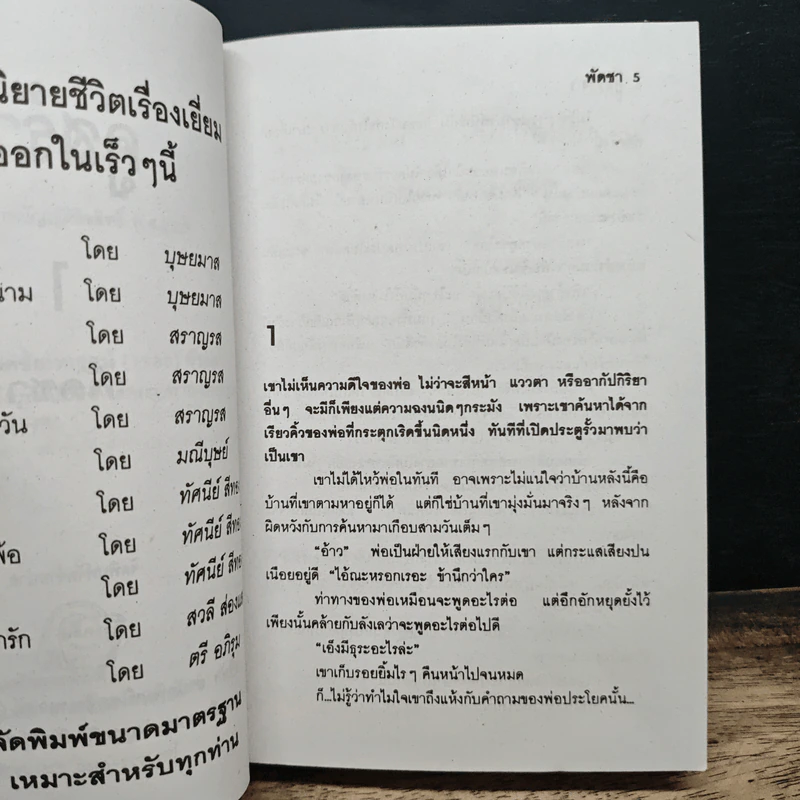 นิยายชีวิตเรื่องเยี่ยม
ออกในเร็วๆนี้
โดย บุษยมาส
โดย บุษยมาส
โดย สราญรส
โดย สราญรส
วัน โดย สราญรส
โดย มณีบุษย์
โดย ทัศนีย์
โดย ทัศนีย์
โดย ทัศนีย์
รัก โดย สวลี
โดย ตรี อภิรุม
จัดพิมพ์ขนาดมาตรฐาน
เหมาะสำหรับทุกท่าน
พัดชา 5
1
เขาไม่เห็นความดีใจของพ่อ ไม่ว่าจะสีหน้า แววตา หรืออากัปกิริยา
อื่นๆ จะมีก็เพียงแต่ความฉงนนิดๆกระมัง เพราะเขาค้นหาได้จาก
เรียวคิ้วของพ่อที่กระตุกเริดขึ้นนิดหนึ่ง ทันทีที่เปิดประตูรั้วมาพบว่า
เป็นเขา
เขาไม่ได้ไหว้พ่อในทันที อาจเพราะไม่แน่ใจว่าบ้านหลังนี้คือ
บ้านที่เขาตามหาอยู่ก็ได้ แต่ก็ใช่บ้านที่เขามุ่งมั่นมาจริงๆ หลังจาก
ผิดหวังกับการค้นหามาเกือบสามวันเต็มๆ
“อ้าว” พ่อเป็นฝ่ายให้เสียงแรกกับเขา แต่กระแสเสียงปน
เนือยอยู่ดี “ไอ้ณะหรอกเรอะ ข้านึกว่าใคร”
ท่าทางของพ่อเหมือนจะพูดอะไรต่อ แต่อึกอักหยุดยั้งไว้
เพียงนั้นคล้ายกับลังเลว่าจะพูดอะไรต่อไปดี
“เอ็งมีธุระอะไรล่ะ”
เขาเก็บรอยยิ้มไรๆ คืนหน้าไปจนหมด
ก็...ไม่รู้ว่าทำไมใจเขาถึงแห้งกับคำถามของพ่อประโยคนั้น...